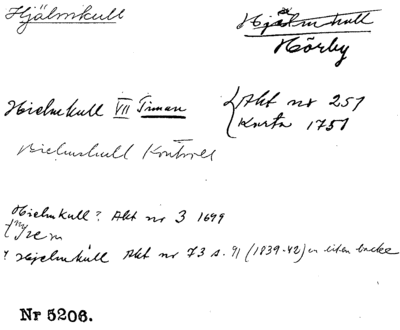 Hjälmkull
Hjälmkull
Hörby
Hielmkull VII Timan
Akt nr 251
Karta 1751
Hielmkull
Hielmkull? Akt nr 3 1699
Hjelmkull Akt nr 73 s. 91 (1839-42) en liten backe
Nr 5206.